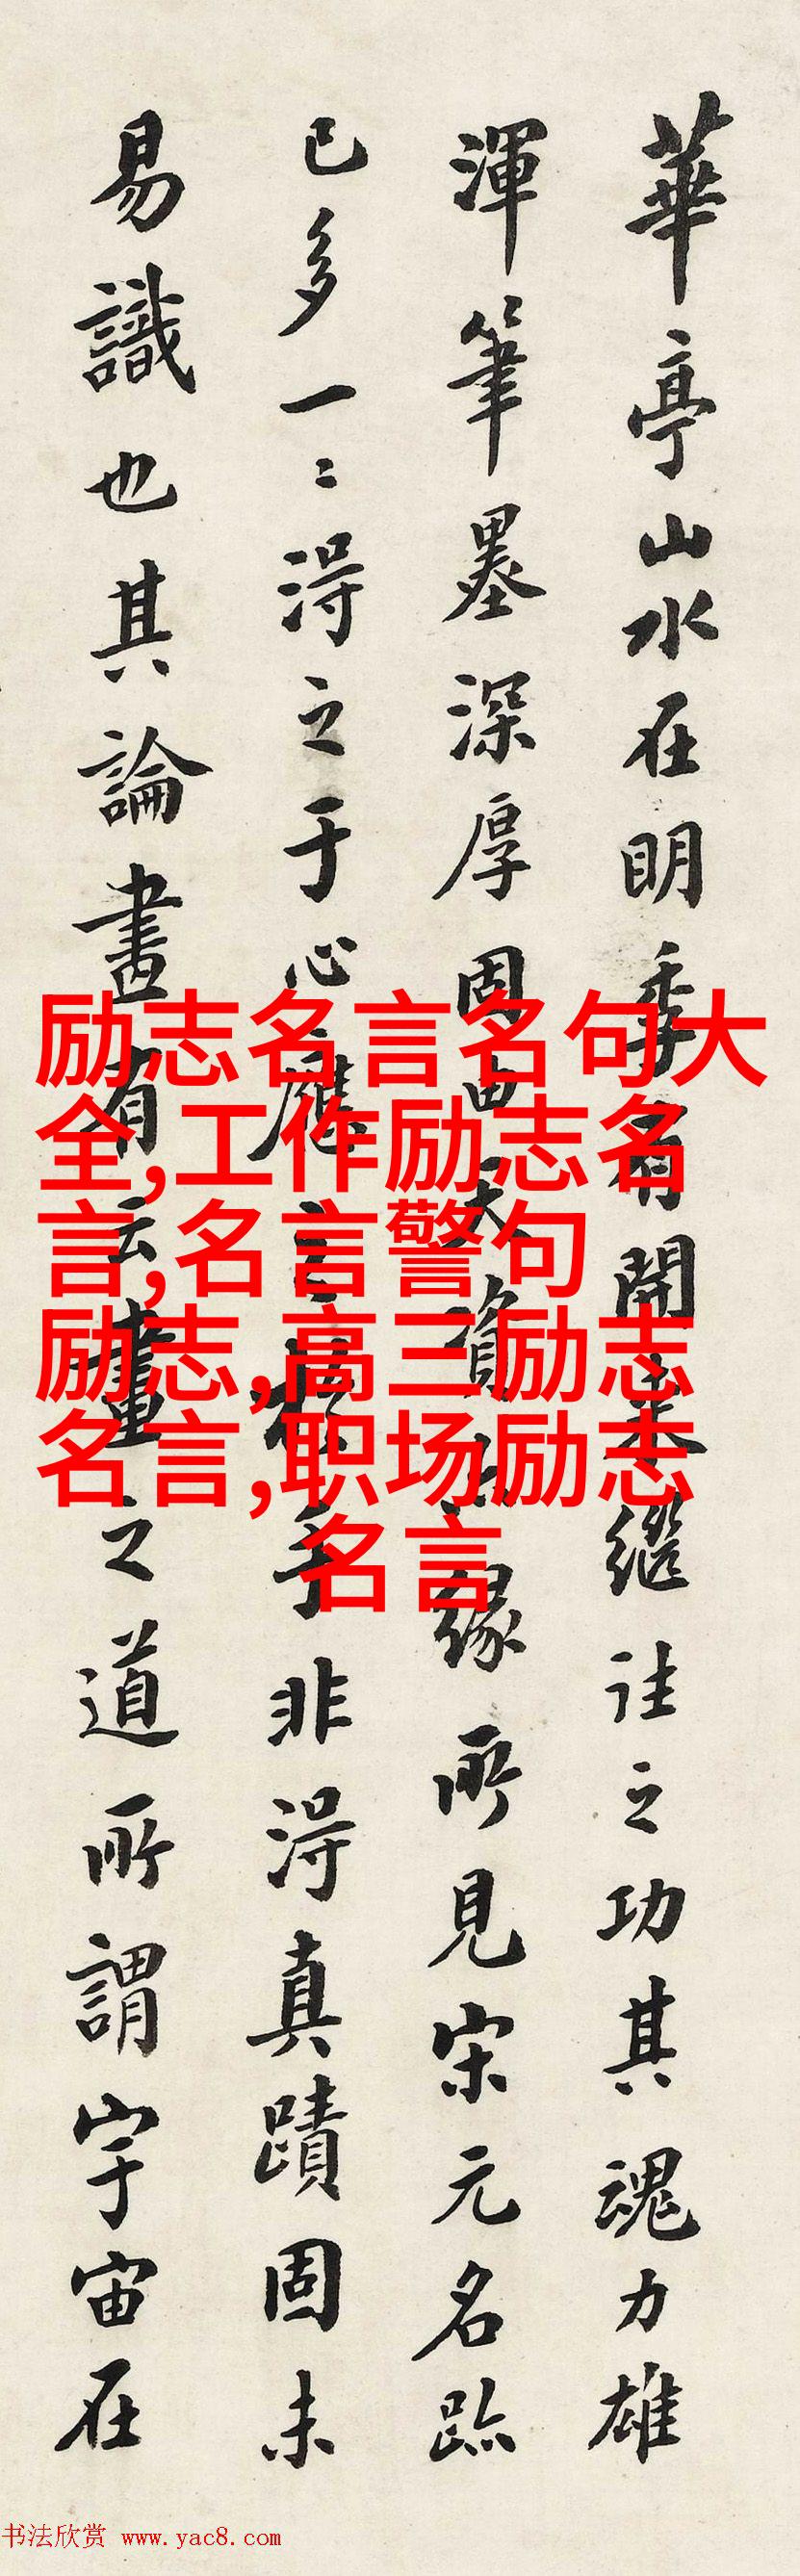 華亭山水在明季有開來繼往之功其魂力雄
渾筆墨深厚固由天資緣所見宋元名跡
已多一二得之于心應之於手非得真蹟固未
易識也其論畫有云畫之道所謂宇宙在
励志名言名句大
全,工作励志名
言,名言警句
励志,高三励志
名言,职场励志
名言
书法欣赏 www.yac8.com